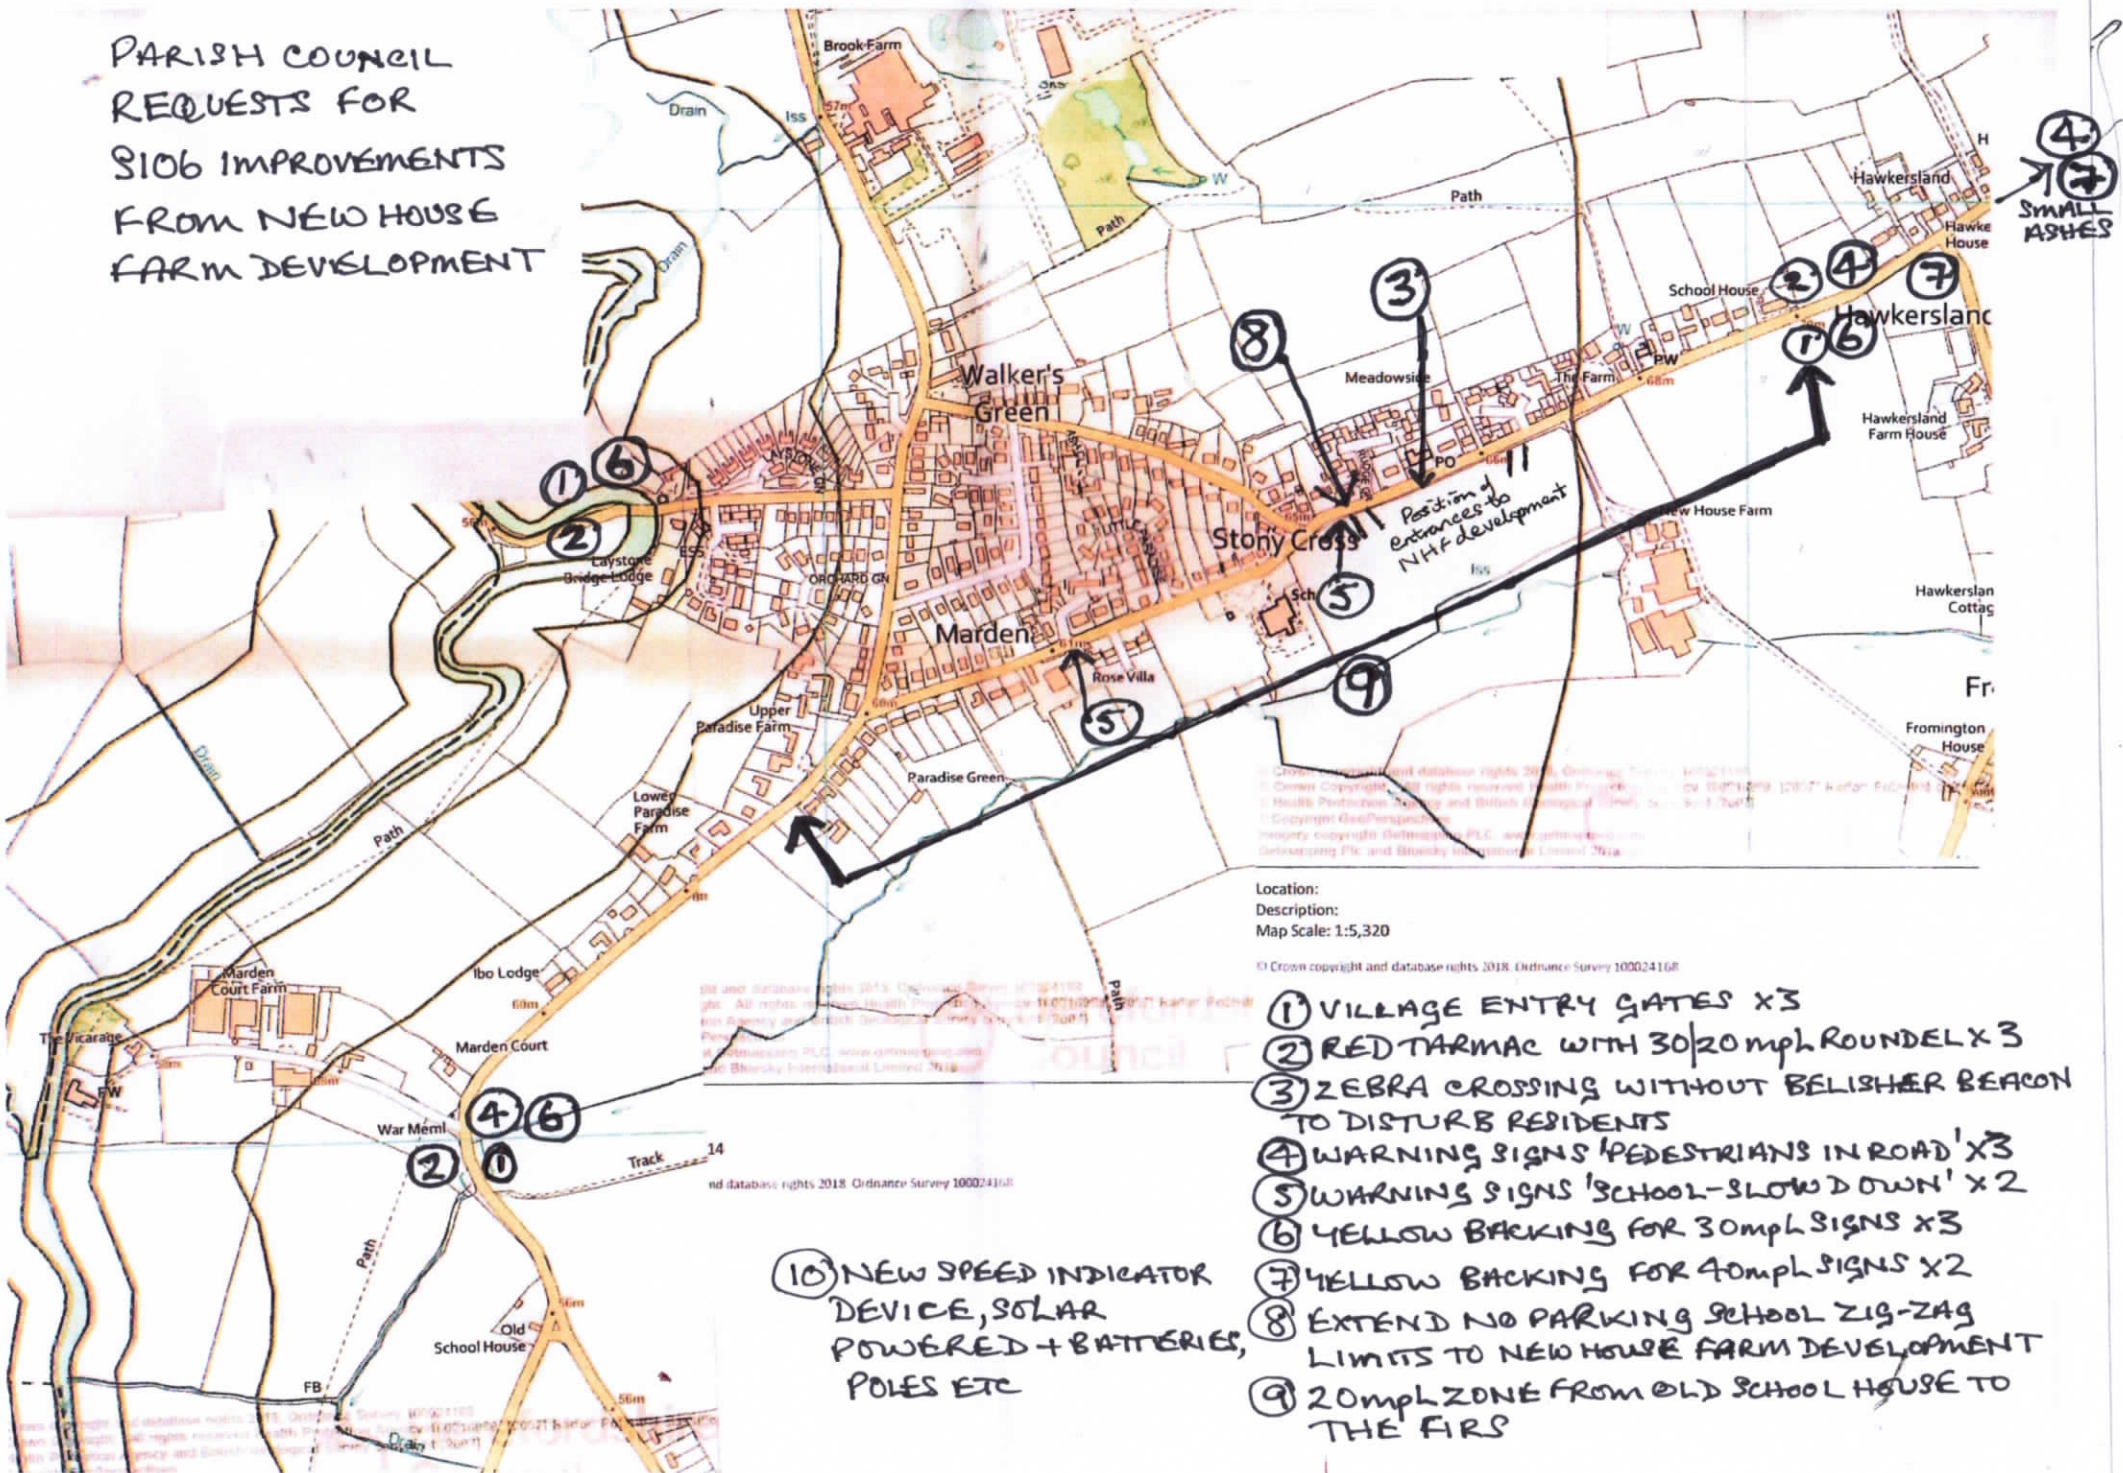 PARISH COUNCIL
REQUESTS FOR
S106 IMPROVEMENTS
FROM NEW HOUSE
FARM DEVELOPMENT
Brook Farm
57m
Drain
Iss
Drain
W
Path
Path
H
Hawkersland
4
7
SMALL
ASHES
Hawke
House
School House
2
4
7
Hawkersland
1
6
W
PW
68m
The Farm
Meadowside
3
8
Walker's
Green
Hawkersland
Farm House
1
6
2
LAYSTONE GN
Laystone
Bridge Lodge
ESS
ORCHARD GN
PO
66m
65m
Stony Cross
Position of
entrances to
NHF development
New House Farm
Iss
Sch
5
Hawkerslan
Cottag
Marden
61m
Rose Villa
5
9
Fr
Fromington
House
Upper
Paradise Farm
60m
Paradise Green
Lower
Paradise
Farm
Drain
Path
Path
Location:
Description:
Map Scale: 1:5,320
© Crown copyright and database rights 2018. Ordnance Survey 100024168
Marden
Court Farm
Ibo Lodge
60m
The Vicarage
PW
Marden Court
4
6
War Meml
2
1
Track
14
nd database rights 2018. Ordnance Survey 100024168
Path
Old
School House
56m
56m
FB
Drain
1 VILLAGE ENTRY GATES X3
2 RED TARMAC WITH 30/20mph ROUNDEL X 3
3 ZEBRA CROSSING WITHOUT BELISHER BEACON
TO DISTURB RESIDENTS
4 WARNING SIGNS 'PEDESTRIANS IN ROAD' X3
5 WARNING SIGNS 'SCHOOL-SLOW DOWN' X2
6 YELLOW BACKING FOR 30mph SIGNS X3
7 YELLOW BACKING FOR 40mph SIGNS X2
8 EXTEND NO PARKING SCHOOL ZIG-ZAG
LIMITS TO NEW HOUSE FARM DEVELOPMENT
9 20mph ZONE FROM OLD SCHOOL HOUSE TO
THE FIRS
10 NEW SPEED INDICATOR
DEVICE, SOLAR
POWERED + BATTERIES,
POLES ETC